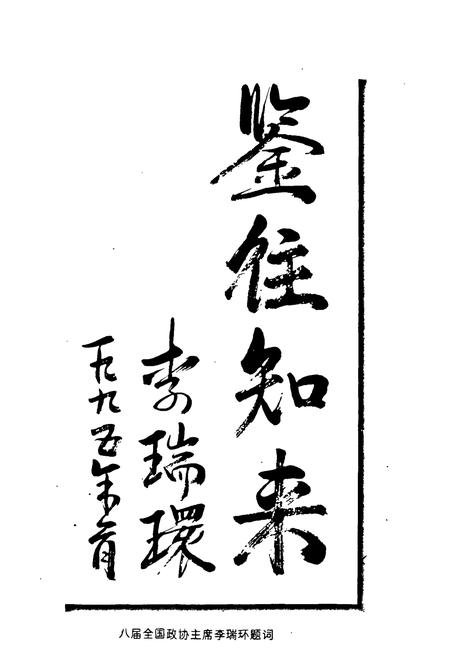 鉴往知来
李瑞環
一九九五年一月
八届全国政协主席李瑞环题词